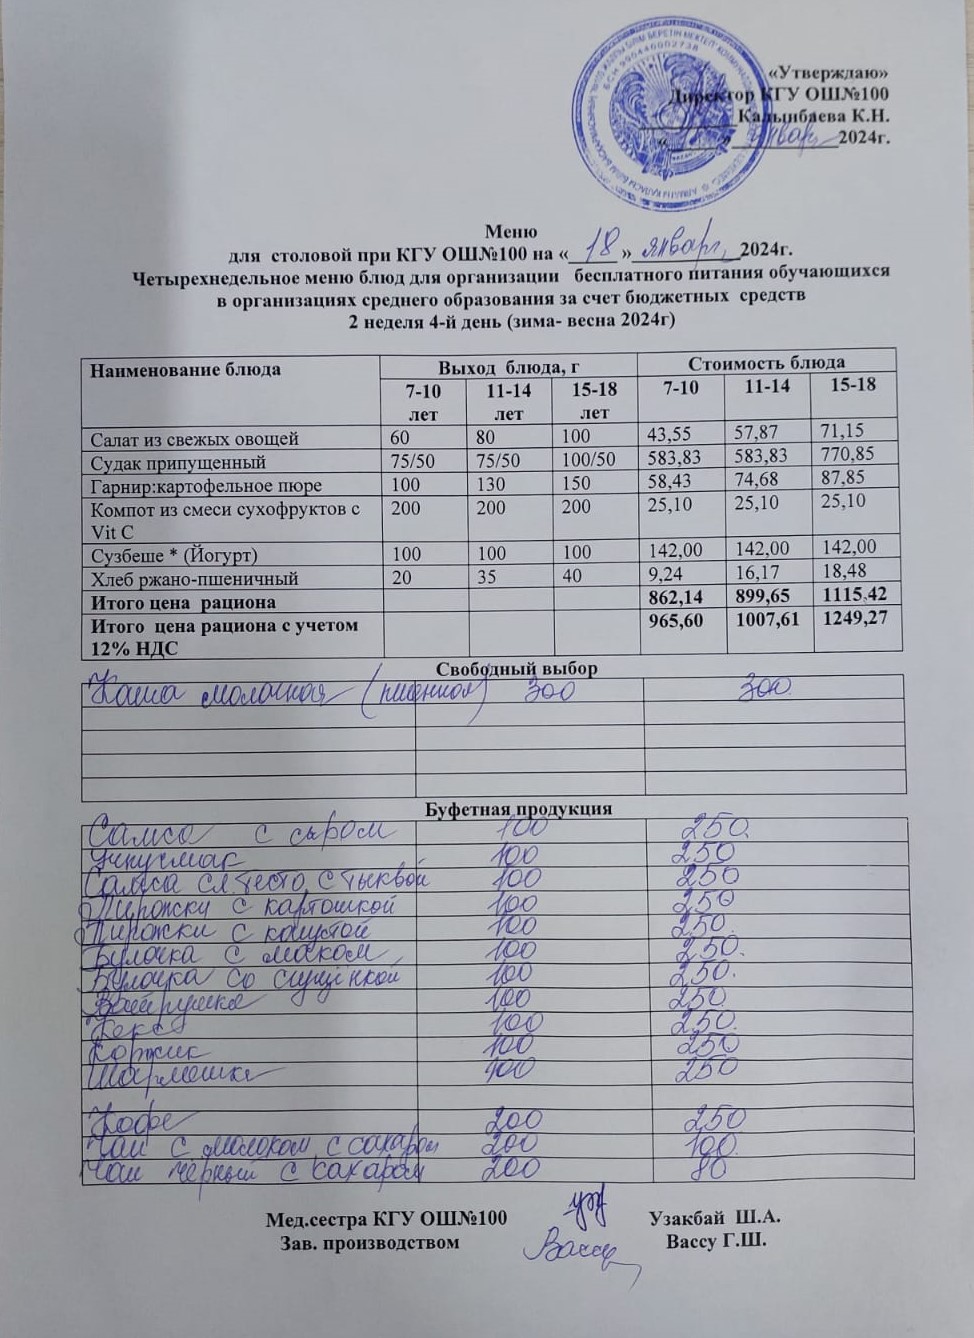 «Утверждаю»
Директор КГУ ОШ№100
Калынбаева К.Н.
«      » январь 2024г.
Меню
для столовой при КГУ ОШ№100 на « 18 » январь 2024г.
Четырехнедельное меню блюд для организации бесплатного питания обучающихся
в организациях среднего образования за счет бюджетных средств
2 неделя 4-й день (зима- весна 2024г)
Наименование блюда Выход блюда, г Стоимость блюда
7-10 лет 11-14 лет 15-18 лет 7-10 11-14 15-18
Салат из свежых овощей 60 80 100 43,55 57,87 71,15
Судак припущенный 75/50 75/50 100/50 583,83 583,83 770,85
Гарнир:картофельное пюре 100 130 150 58,43 74,68 87,85
Компот из смеси сухофруктов с 200 200 200 25,10 25,10 25,10
Vit C
Сузбеше * (Йогурт) 100 100 100 142,00 142,00 142,00
Хлеб ржано-пшеничный 20 35 40 9,24 16,17 18,48
Итого цена рациона 862,14 899,65 1115,42
Итого цена рациона с учетом 965,60 1007,61 1249,27
12% НДС
Свободный выбор
Каша молочная (пшенная) 300 300
Буфетная продукция
Самса с сыром 100 250
Учпучмак 100 250
Самса сл.тесто с тыквой 100 250
Пирожки с картошкой 100 250
Пирожки с капустой 100 250
Булочка с маком 100 250
Булочка со сгущенкой 100 250
Ватрушка 100 250
Кекс 100 250
Коржик 100 250
100 250
Кофе 200 250
Чай с молоком с сахаром 200 100
Чай черный с сахаром 200 80
Мед.сестра КГУ ОШ№100 Узакбай Ш.А.
Зав. производством Вассу Вассу Г.Ш.